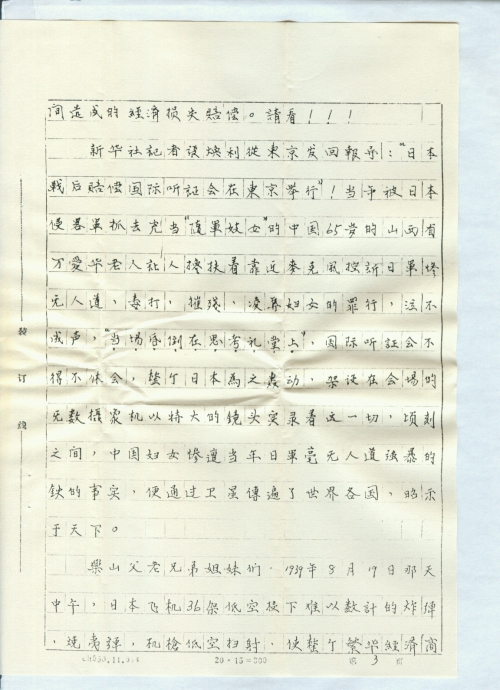 间造成的經済损失賠偿。請看！！！
新华社記者張煥利從東京发回報导："日本
戰后賠偿国际听証会在東京举行"！当年被日本
侵畧軍抓去充当"随軍妓女"的中国65岁的山西省
万愛华老人让人搀扶着靠近麥克風控訴日軍绝
无人道，毒打，摧残，凌辱妇女的罪行，泣不
成声，"当場昏倒在思考礼堂上"，国际听証会不
得不休会，整个日本為之轰动，架设在会場的
无数摄象机以特大的镜头实录着这一切，頃刻
之间，中国妇女惨遭当年日軍毫无人道凌暴的
鉄的事实，便通过卫星傳遍了世界各国，昭示
于天下。
樂山父老兄弟姐妹们．1939年8月19日那天
中午，日本飞机36架低空投下难以数計的炸弹
，烧夷弹，机槍低空扫射，使整个繁华經済商
装订线
20×15=300
第 3 頁